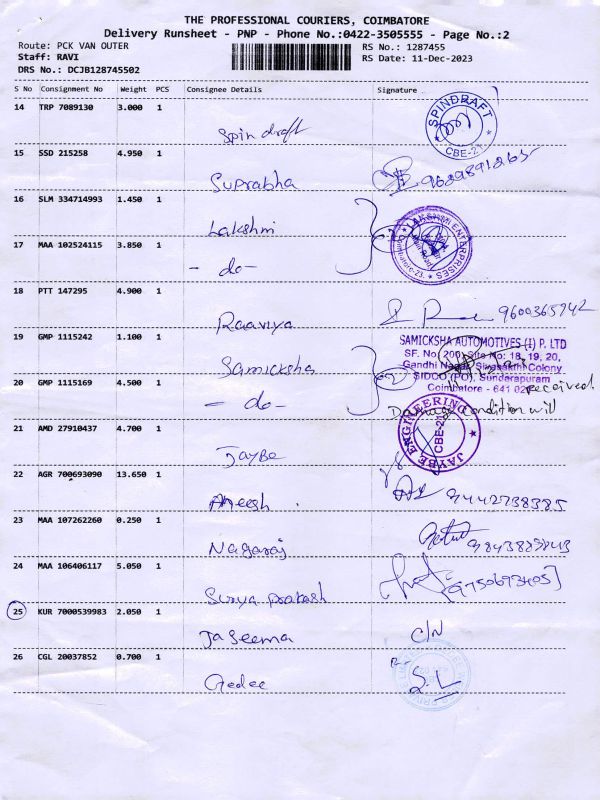 THE PROFESSIONAL COURIERS, COIMBATORE
Delivery Runsheet - PNP - Phone No.:0422-3505555 - Page No.:2
Route: PCK VAN OUTER
RS No.: 1287455
Staff: RAVI
RS Date: 11-Dec-2023
DRS No.: DCJB128745502
S No Consignment No Weight PCS Consignee Details Signature
14 TRP 7089130 3.000 1
Spin draft
SPINDRAFT
CBE-21
15 SSD 215258 4.950 1
Suprabha
16 SLM 334714993 1.450 1
Lakshmi
ENTERPRISES
17 MAA 102524115 3.850 1
- do -
18 PTT 147295 4.900 1
Raaviya
9600365942
19 GMP 1115242 1.100 1
Samicksha
SAMICKSHA AUTOMOTIVES (I) P. LTD
SF. No. 200, Site No: 18, 19, 20,
Gandhi Nagar, Sivasakthi Colony
SIDCO (PO), Sundarapuram
Coimbatore - 641
20 GMP 1115169 4.500 1
- do -
received
Damage condition will
21 AMD 27910437 4.700 1
Jaybe
JAYBE ENGINEERING
CBE-21
22 AGR 700693090 13.650 1
Aneesh
9442738385
23 MAA 107262260 0.250 1
Nagaraj
24 MAA 106406117 5.050 1
Surya prakash
25 KUR 7000539983 2.050 1
Jaseema
C/N
26 CGL 20037852 0.700 1
Gedee
S.L